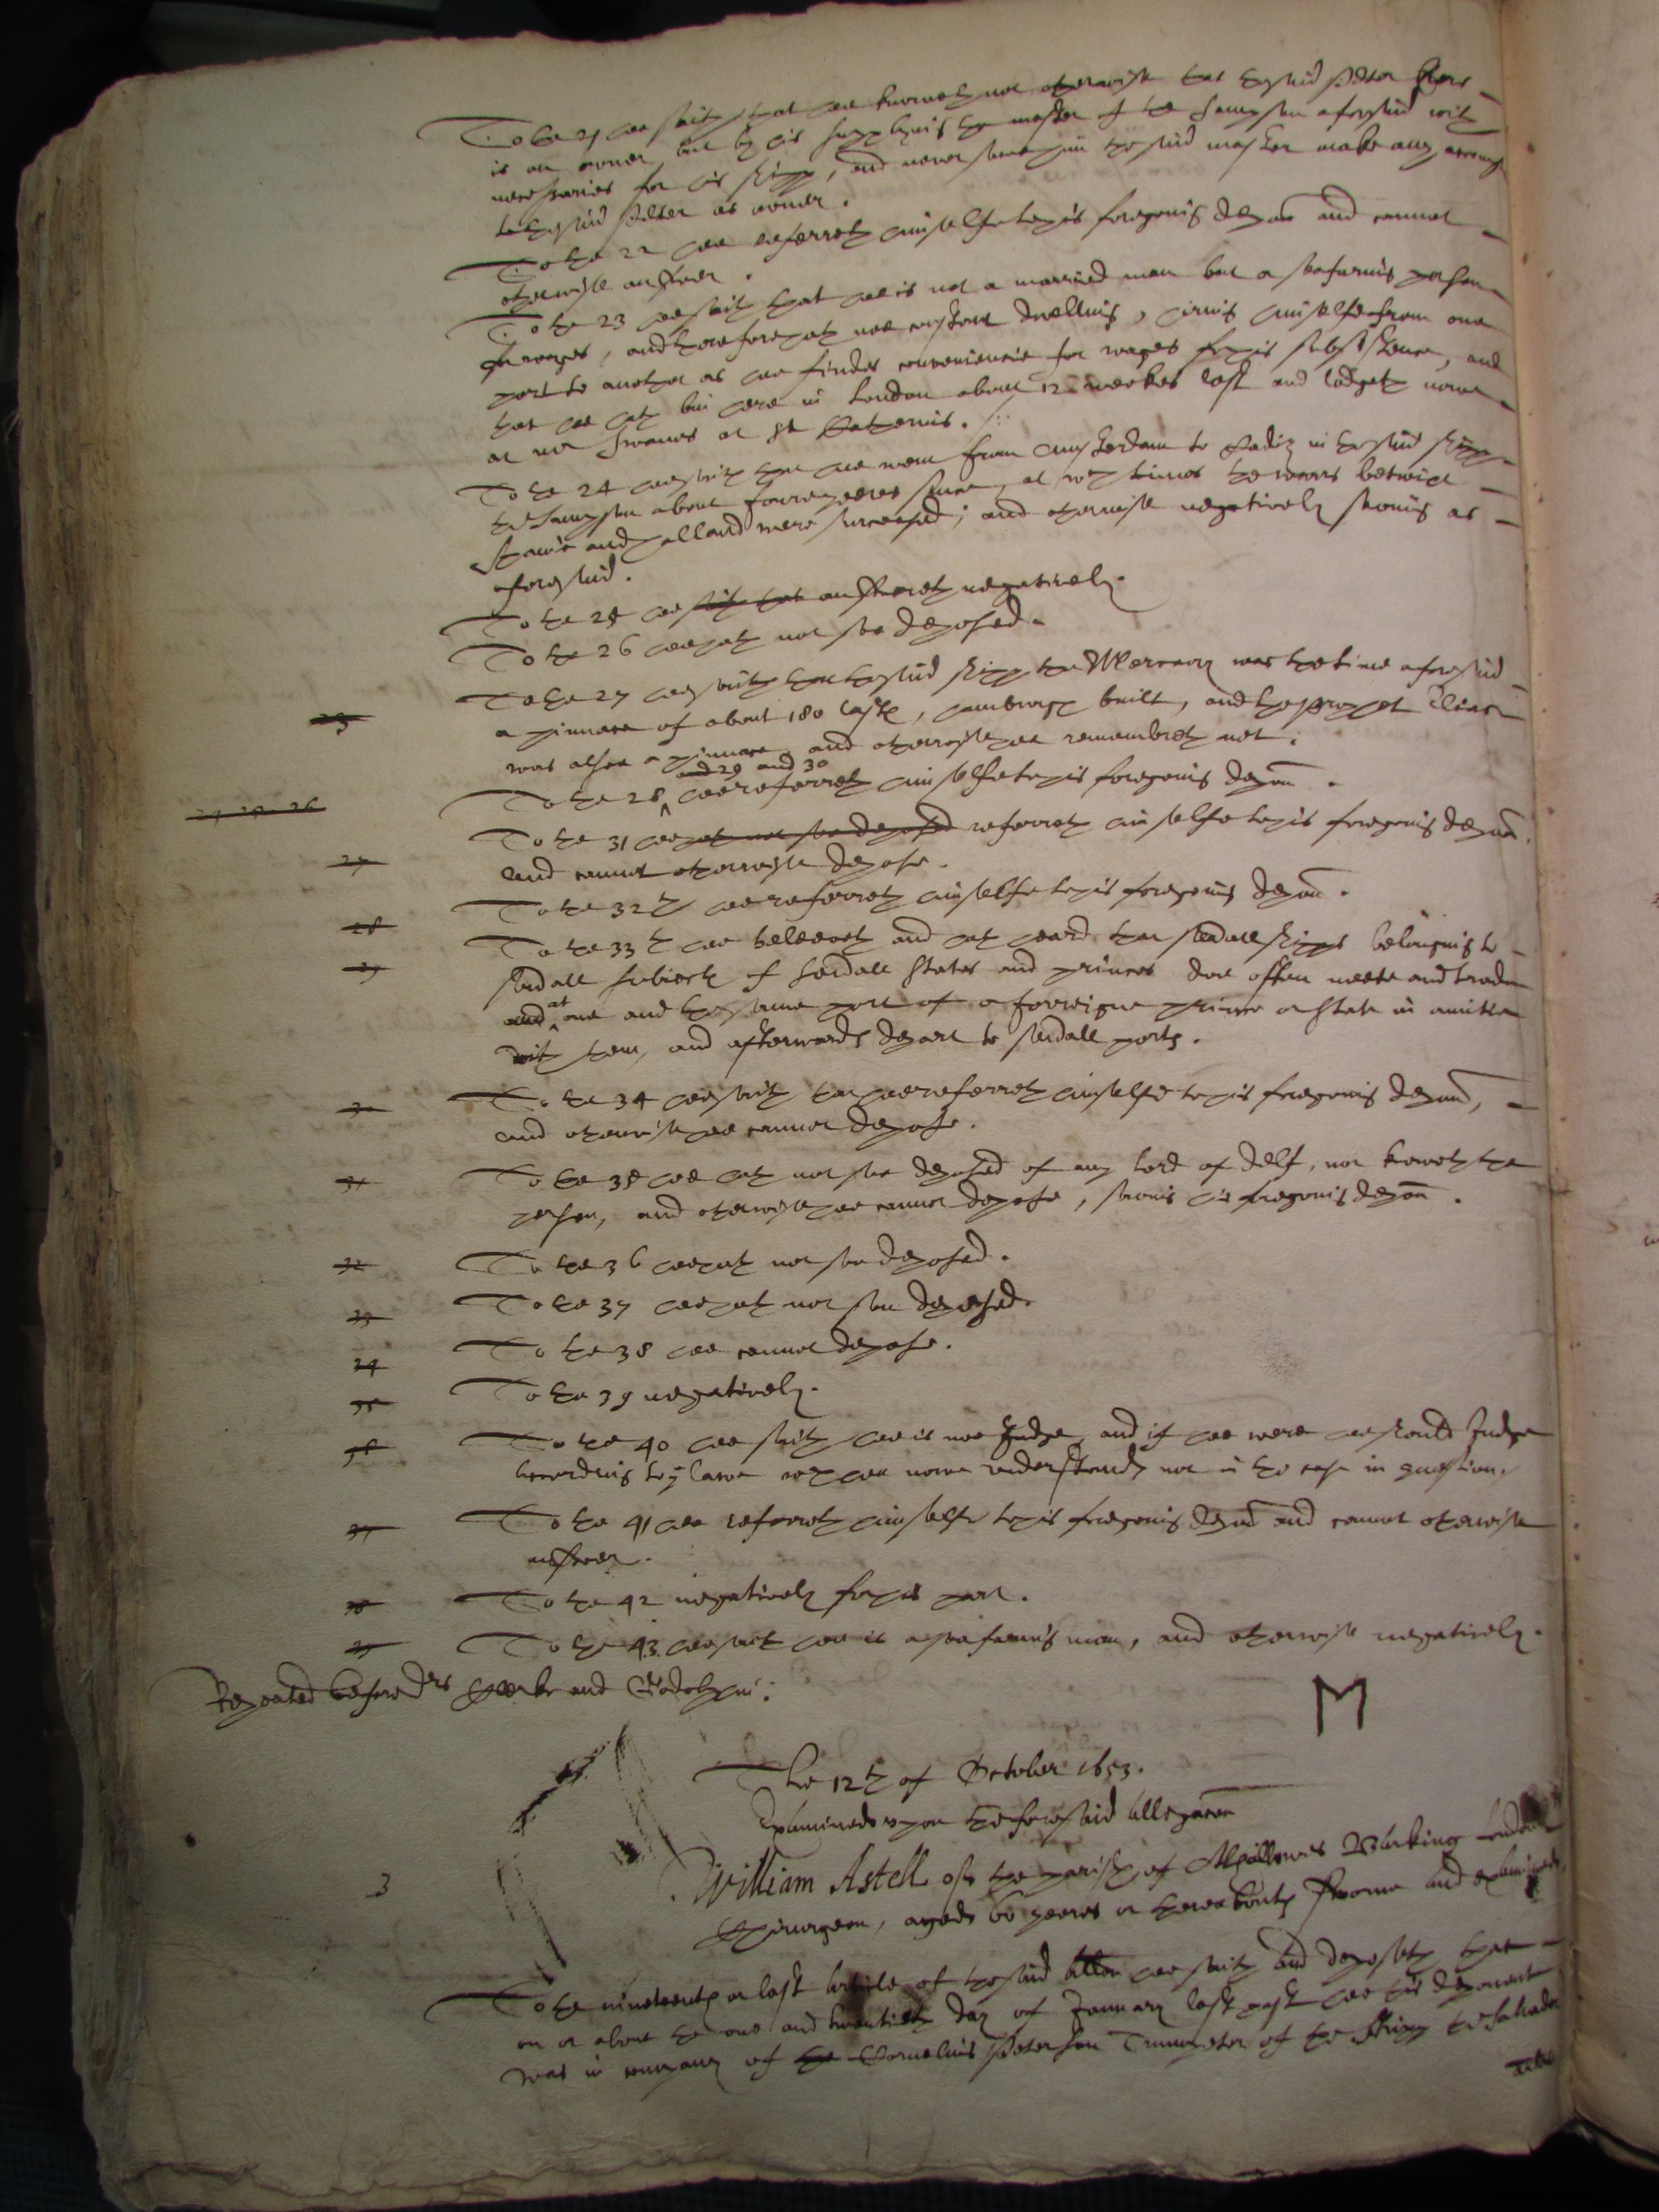 To the 21 hee saith that hee knoweth not otherwise that the said Peter
is an owner, but by his supplying the master of the Sampson aforesaid with
necessaries for his shipp, and never sawe him the said master make any accompt
to the said Peter as owner.
To the 22 hee referreth himselfe to his foregoing depon and cannot
otherwise answer.
To the 23 hee saith that hee is not a married man but a seafaring person
and therefore hath noe constant dwelling, hiring himselfe from one
port to another as hee findes conveniencie for wages for his subsistence, and
that hee hath bin here in London about 12 weekes last and lodgeth nowe
at at St Katherins.
To the 24 hee saith that hee went from Amsterdam to Cadiz in the said shipp
the Sampson about foure yeeres since, at wch time the warrs betwixt
Spaine and Holland were surceased; and otherwise negatively saving as
aforesaid.
To the 25 hee saith that answereth negatively.
To the 26 hee hath not soe deposed.
To the 27 hee saith that the said shipp the Mercury was the time aforesaid
a pinnace of about 180 lasts, hambrough built, and the Prophet Elias
was alsoe a pinnace, and otherwise hee remembreth not.
and 29 and 30
To the 28 hee referreth himselfe to his foregoing depon.
To the 31 hee hath not soe deposed referreth himselfe to his foregoing depon
and cannot otherwise depose.
To the 32th hee referreth himselfe to his foregoing depon.
To the 33th hee beleeveth and hath heard that severall shipps belonging to
severall subiects of severall States and princes doe often meete and trade
and at one and the same port of a forreigne prince or State in amitie
with them, and afterwards depart to severall ports.
To the 34 hee saith that hee referreth himselfe to his foregoing depon,
and otherwise hee cannot depose.
To the 35 hee hath not soe deposed of any lord of Delf, nor knoweth the
person, and otherwise hee cannot depose, saving his foregoing depon.
To the 36 hee hath not soe deposed.
To the 37 hee hath not soe deposed.
To the 38 hee cannot depose.
To the 39 negatively.
To the 40 hee saith hee is noe Judge, and if hee were hee should Judge
according to ye lawe wch hee nowe understands not in the case in question.
To the 41 hee referreth himselfe to his foregoing depon and cannot otherwise
answer.
To the 42 negatively for his part.
To the 43 hee saith hee is a seafaring man, and otherwise negatively.
Repeated before drs Clerke and Godolphin.
M
The 12th of October 1653.
Examined upon the foresaid allegacon
3
William Astell of the parish of Alhallowes Barking London
Chirurgeon, aged 60 yeeres or thereabouts sworne and examined
To the nineteenth or last Article of the said allon hee saith and deposeth that
on or about the one and twentieth day of January last past hee this deponent
was in company of the Cornelius Peterson Trumpeter of the shipp the Salvador